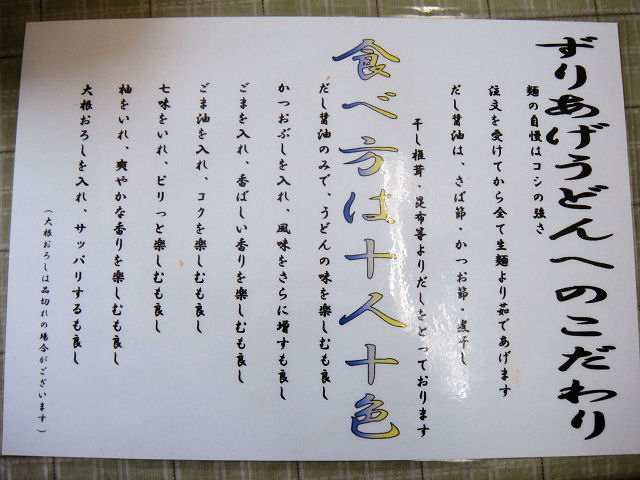 ずりあげうどんへのこだわり
麺の自慢はコシの強さ
注文を受けてから全て生麺より茹であげます
だし醤油は、さば節・かつお節・煮干し
干し椎茸・昆布等よりだしをとっております
食べ方は十人十色
だし醤油のみで、うどんの味を楽しむも良し
かつおぶしを入れ、風味をさらに増すも良し
ごまを入れ、香ばしい香りを楽しむも良し
ごま油を入れ、コクを楽しむも良し
七味をいれ、ピリっと楽しむも良し
柚をいれ、爽やかな香りを楽しむも良し
大根おろしを入れ、サッパリするも良し
(大根おろしは品切れの場合がございます)